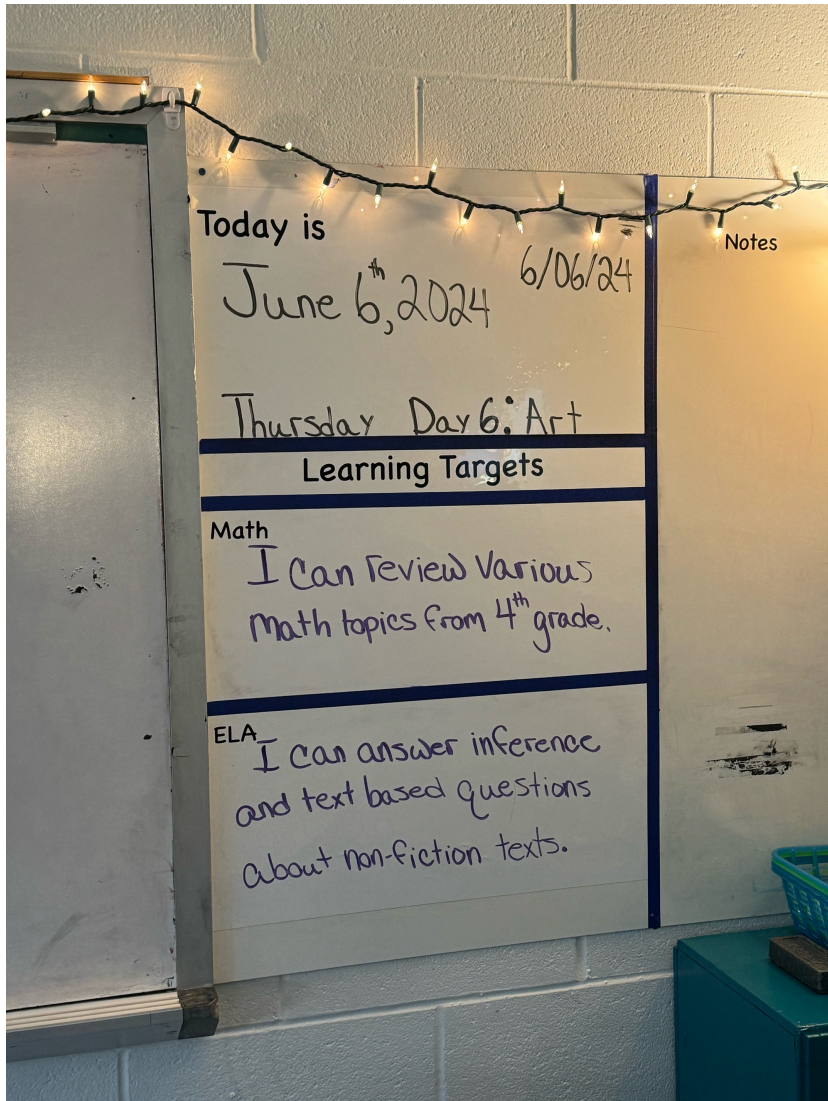 Today is
6/06/24
June 6th, 2024
Thursday Day 6: Art
Learning Targets
Math
I can review various
math topics from 4th grade.
ELA
I can answer inference
and text based questions
about non-fiction texts.
Notes